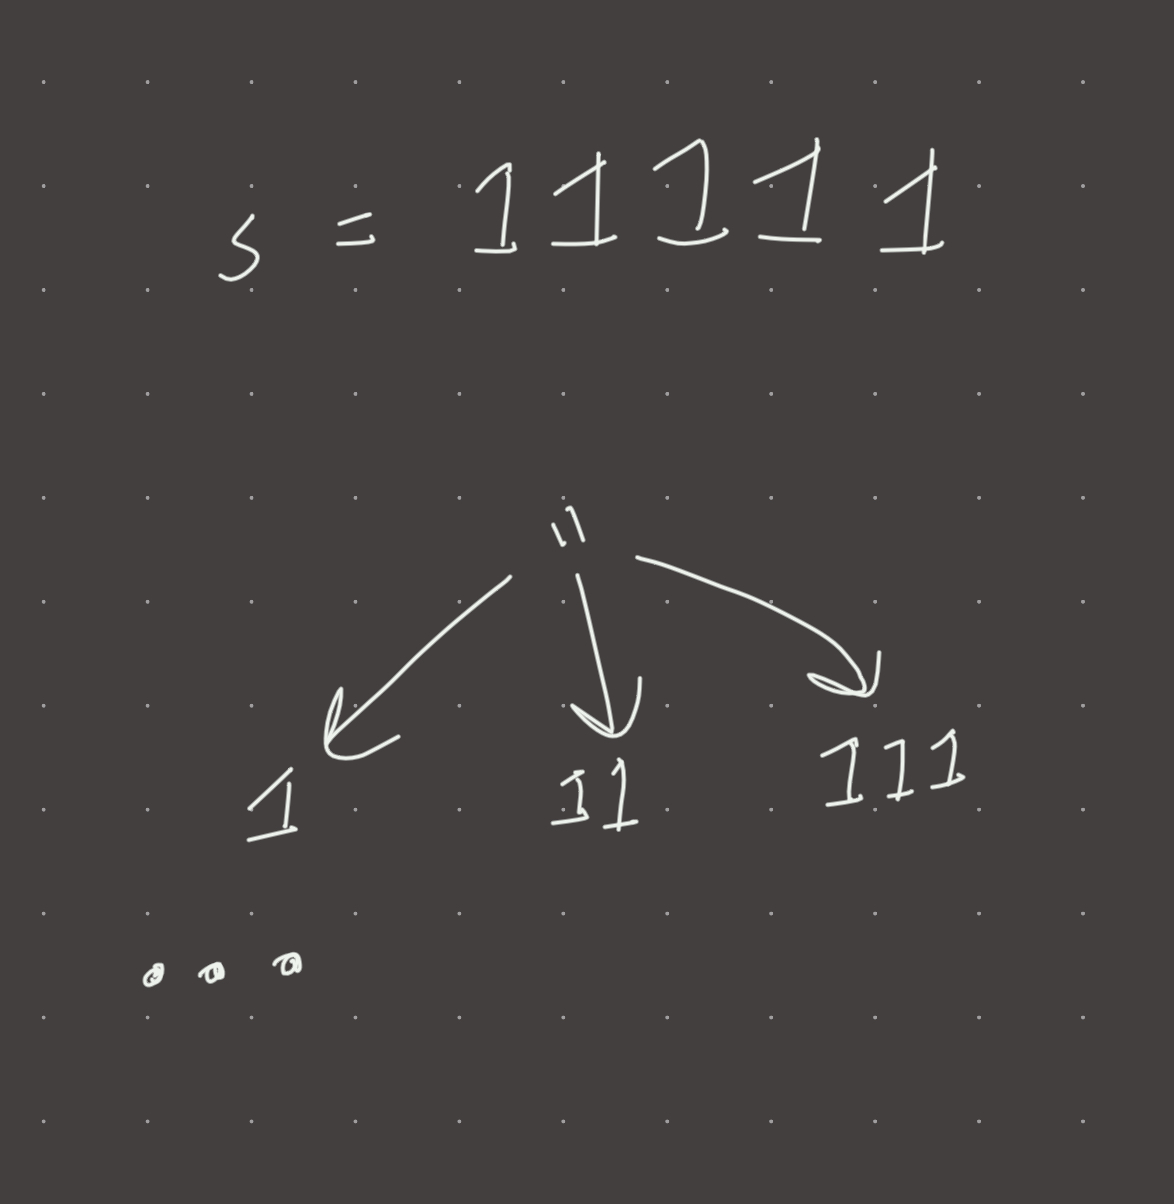 s = 11111
"
1 11 111
...